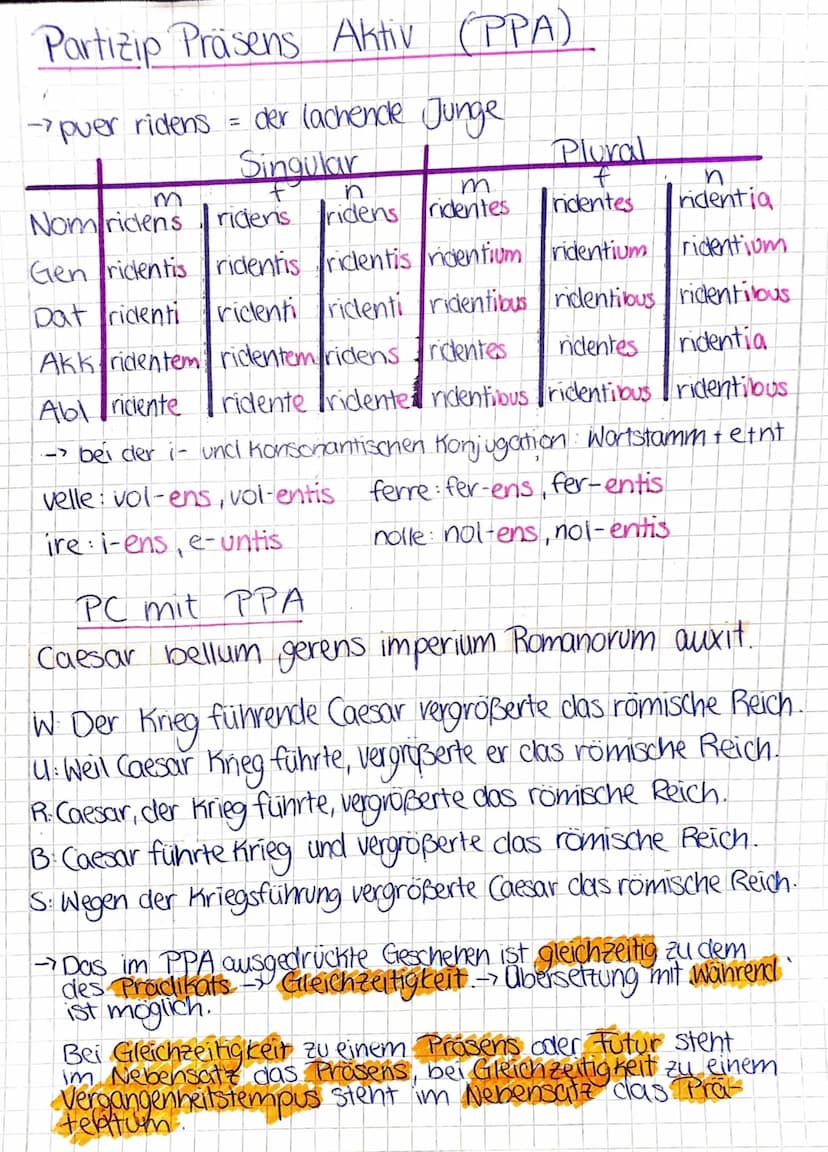 Partizip Präsens Aktiv (PPA)
-> puer ridens = der lachende Junge
Singular Plural
m f n m f n
Nom ridens ridens ridens ridentes ridentes ridentia
Gen ridentis ridentis ridentis ridentium ridentium ridentium
Dat ridenti ridenti ridenti ridentibus ridentibus ridentibus
Akk ridentem ridentem ridens ridentes ridentes ridentia
Abl ridente ridente ridente ridentibus ridentibus ridentibus
-> bei der i- und konsonantischen Konjugation: Wortstamm + e + nt
velle: vol-ens, vol-entis ferre: fer-ens, fer-entis
ire: i-ens, e-untis nolle: nol-ens, nol-entis
PC mit PPA
Caesar bellum gerens imperium Romanorum auxit.
W: Der Krieg führende Caesar vergrößerte das römische Reich.
U: Weil Caesar Krieg führte, vergrößerte er das römische Reich.
R: Caesar, der Krieg führte, vergrößerte das römische Reich.
B: Caesar führte Krieg und vergrößerte das römische Reich.
S: Wegen der Kriegsführung vergrößerte Caesar das römische Reich.
-> Das im PPA ausgedrückte Geschehen ist gleichzeitig zu dem
des Prädikats -> Gleichzeitigkeit -> Übersetzung mit während
ist möglich.
Bei Gleichzeitigkeit zu einem Präsens oder Futur steht
im Nebensatz das Präsens, bei Gleichzeitigkeit zu einem
Vergangenheitstempus steht im Nebensatz das Prä-
teritum.